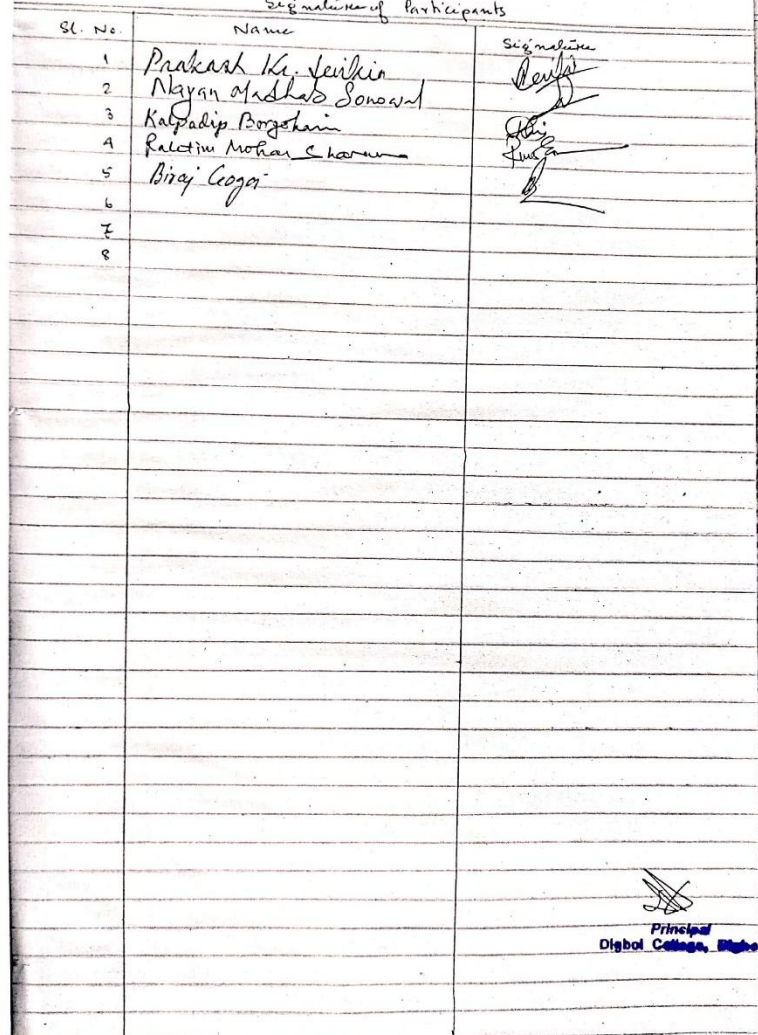 Signature of Participants
Sl. No. Name Signature
1 Prakash Kr.
2 Nayan Madhab Sonowal
3 Kalpadip Borgohain
4 Raktim Mohan Sharma
5 Biraj Gogoi
6
7
8
Principal
Digboi College, Digbo